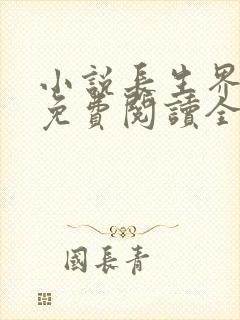 小說長生界
免費閱讀全
國長青